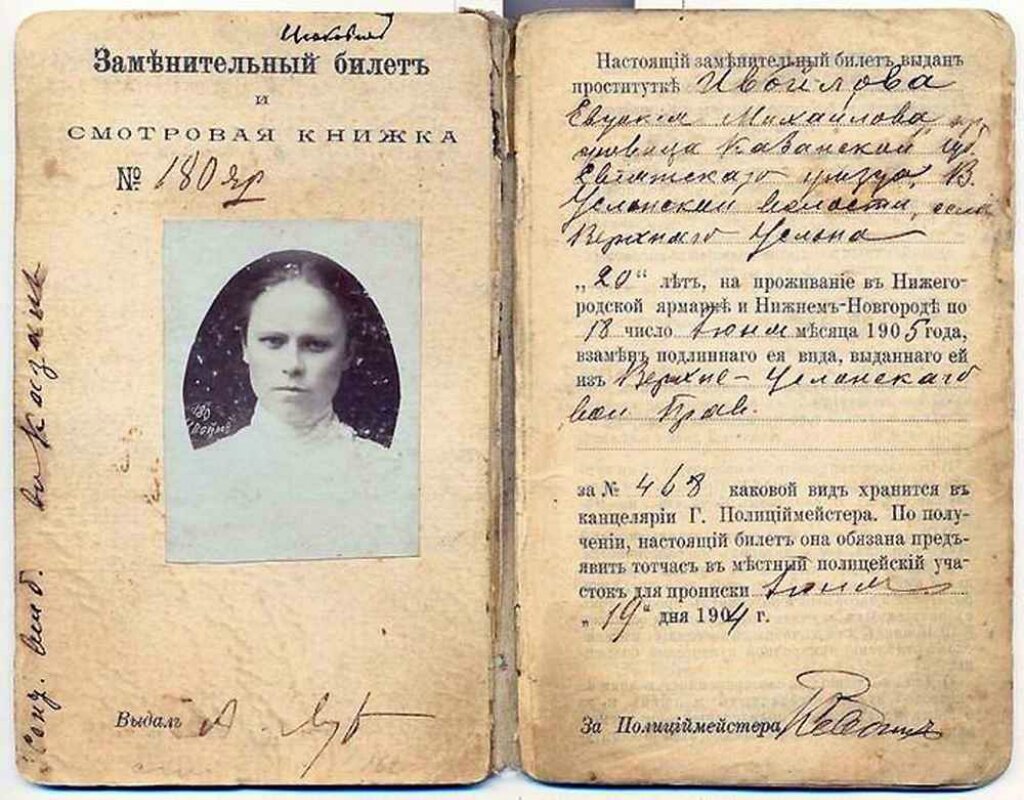 Замѣнительный билетъ
и
СМОТРОВАЯ КНИЖКА
№ 180 яр
180
Выдалъ
Настоящій замѣнительный билетъ выданъ
проституткѣ Ивойлова
Евдокія Михайлова кр
Казанской губ
уѣзда, В.
Услонской волости, села
Верхняго Услона
„20“ лѣтъ, на проживаніе въ Нижего-
родской ярмаркѣ и Нижнемъ-Новгородѣ по
18 число Іюня мѣсяца 1905 года,
взамѣнъ подлиннаго ея вида, выданнаго ей
изъ Верхне-Услонскаго
вол Прав.
за № 468 каковой видъ хранится въ
канцеляріи Г. Полиціймейстера. По полу-
ченіи, настоящій билетъ она обязана предъ-
явить тотчасъ въ мѣстный полицейскій уча-
стокъ для прописки Іюня
„19“ дня 1904 г.
За Полиціймейстера